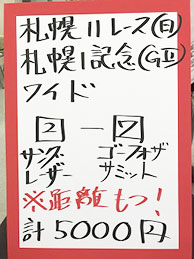 札幌11レース(日)
札幌記念(GII)
ワイド
2 — 7
サングレーザー ゴーフォザサミット
※距離もつ!
計5000円